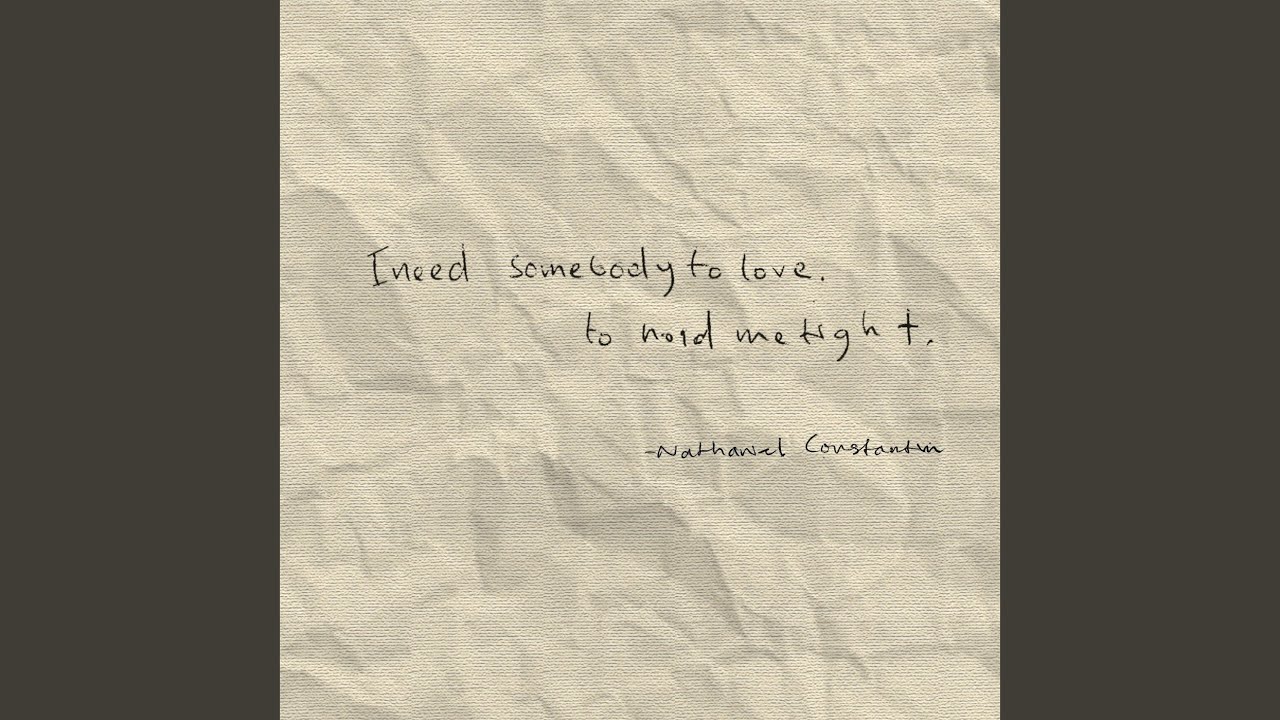 I need somebody to love.
to hold me tight.
-Nathaniel Constantin